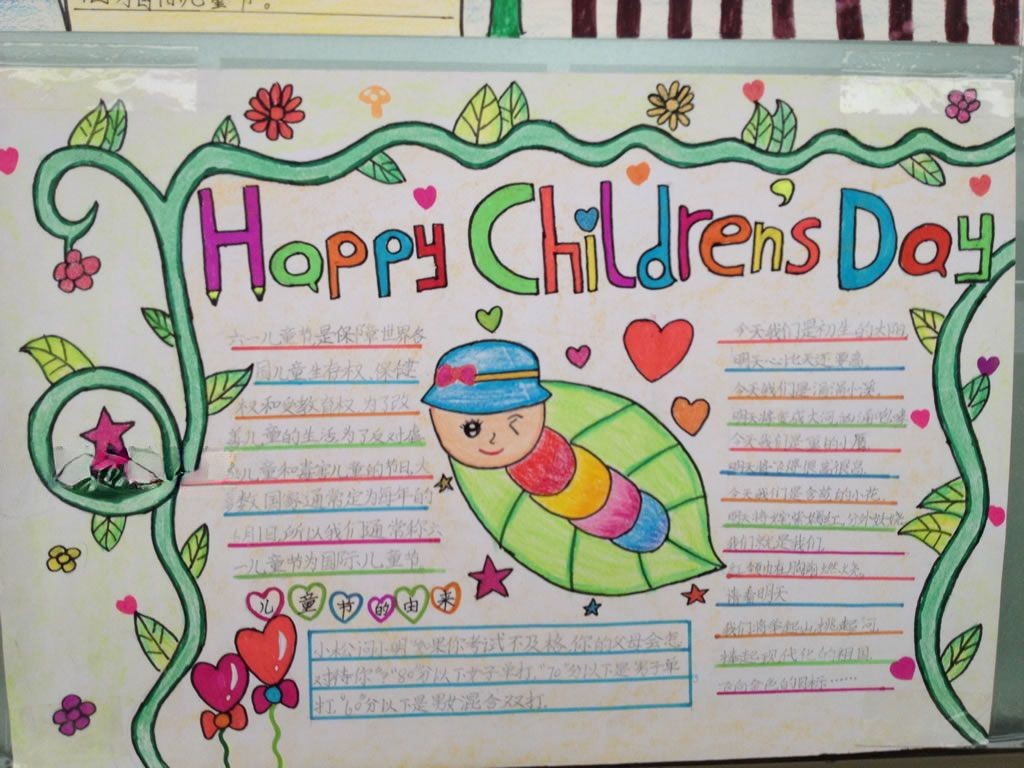 Happy Children's Day
六一儿童节是保障世界各
国儿童生存权、保健
权和受教育权,为了改
善儿童的生活,为了反对虐
儿童和毒害儿童的节日,大
多数国家通常定为每年的
6月1日,所以我们通常称六
一儿童节为国际儿童节。
儿童节的由来
小松问小明"如果你考试不及格,你的父母会怎
对待你"?"80"分以下女子单打,"70"分以下是男子单
打,"60"分以下是男女混合双打.
今天我们是初生的太阳
明天心比天还要高
今天我们是涓涓小溪,
明天将变成大河
今天我们是
明天将飞得很高很高
今天我们是含苞的小花,
明天将姹紫嫣红,分外妖娆
我们就是我们,
红领巾在胸前燃烧.
请看明天
我们将举起山,挑起河
托起现代化的祖国
飞向金色的目标……